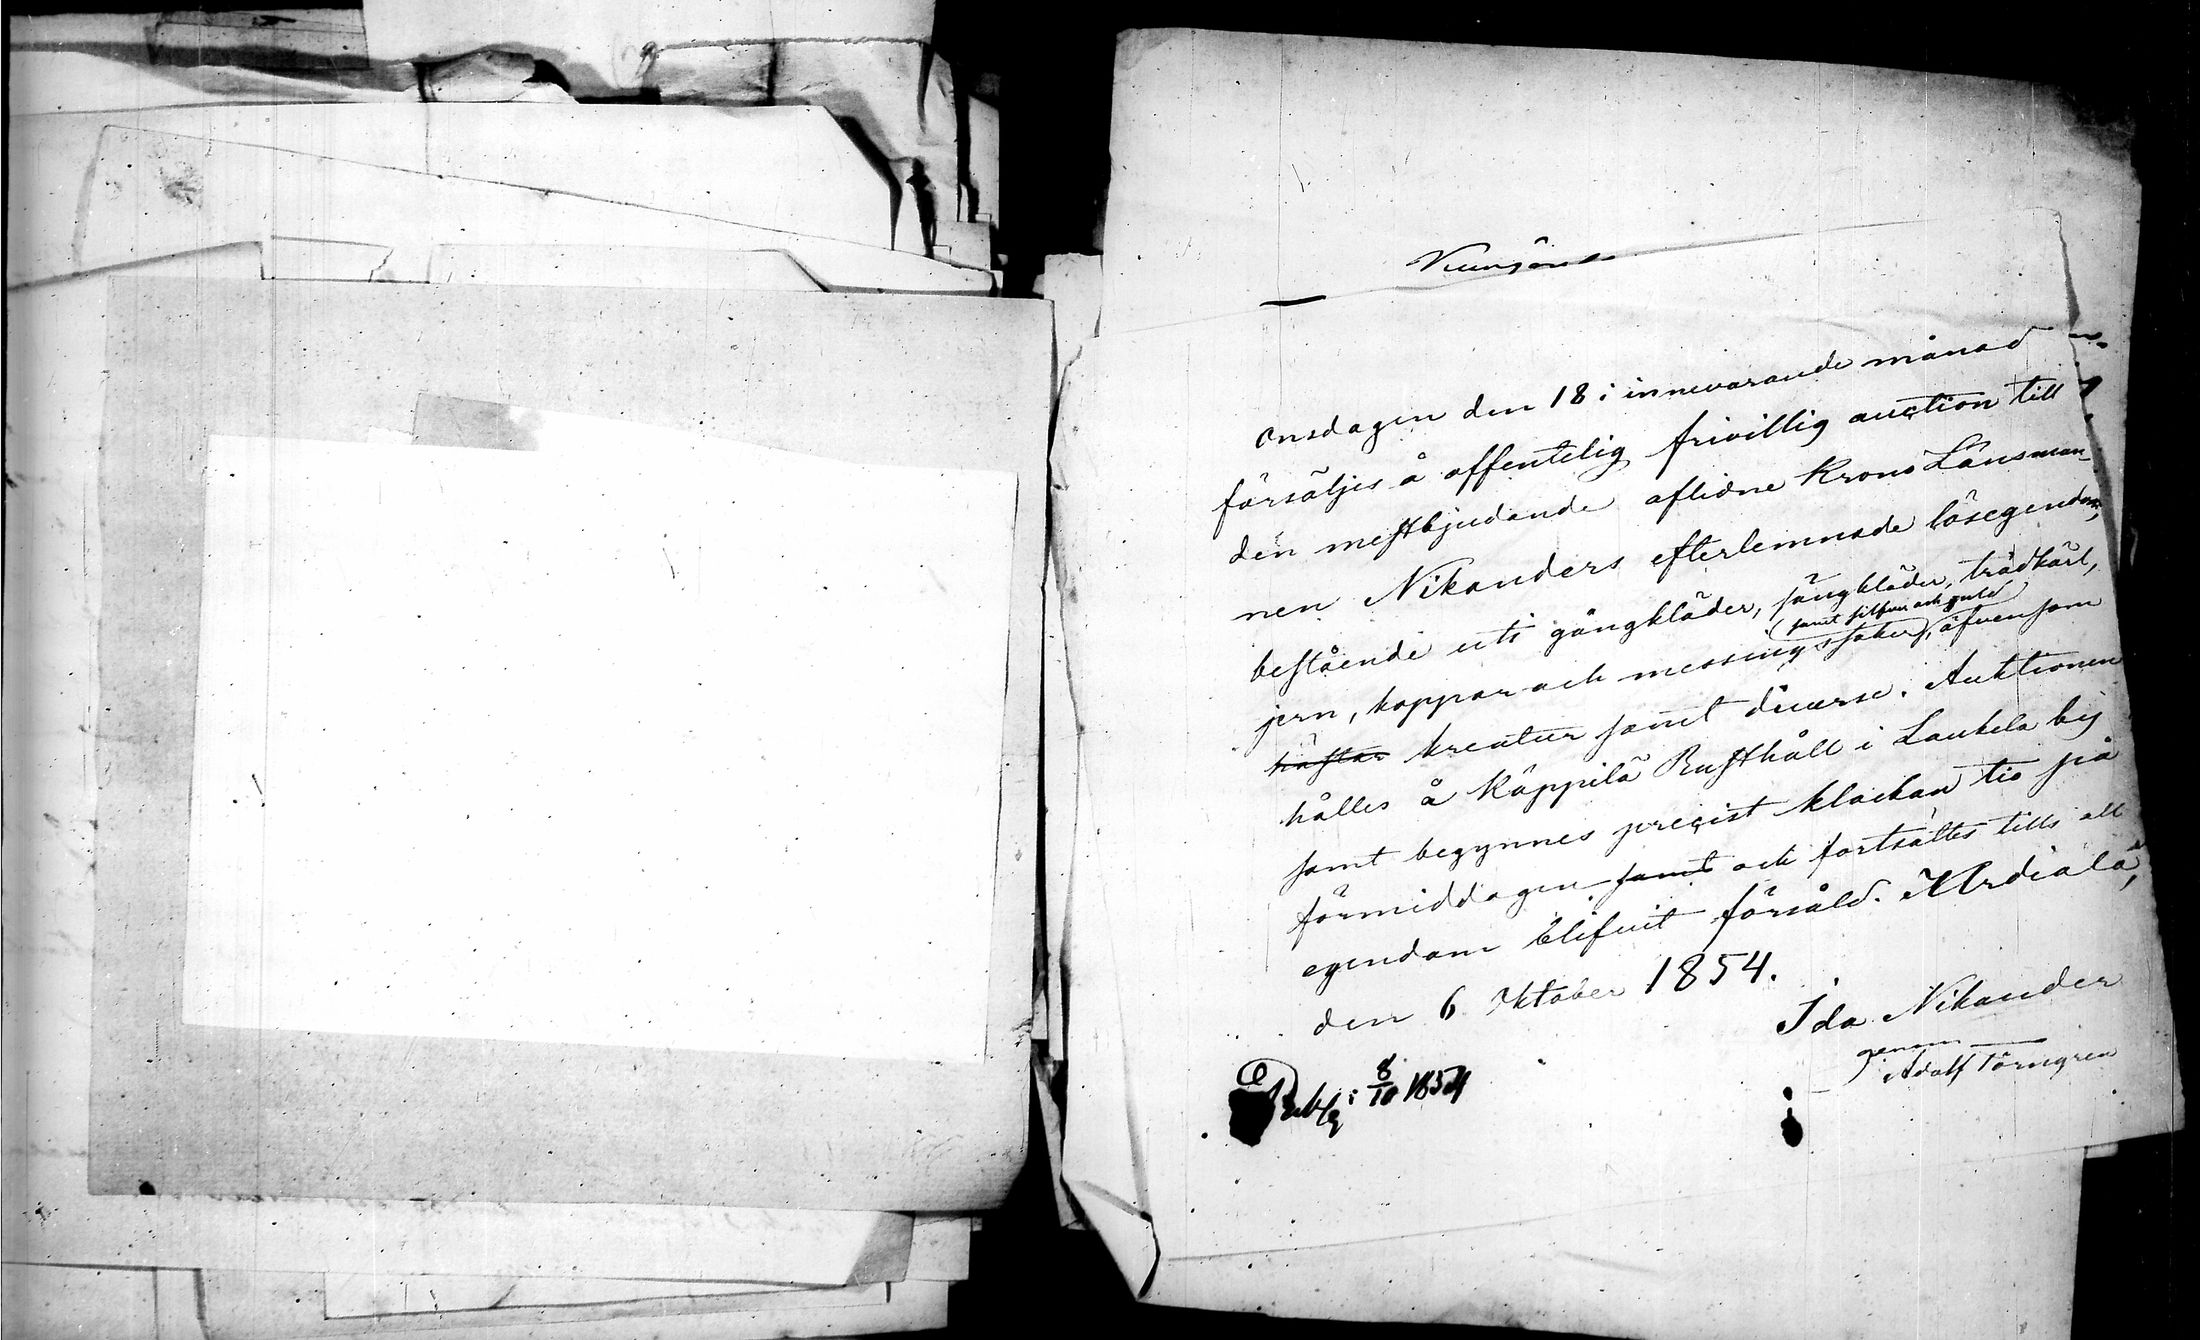 Kungörelse
Onsdagen den 18 i innevarande månad
försäljes å offentelig frivillig auction till
den mestbjudande aflidne Krono Länsman-
nen Nikanders efterlemnade lösegendom,
bestående uti gångkläder, sängkläder, trädkärl,
samt silfver och guld
jern, koppar och messings saker, äfvensom
hästar kreatur samt diverse. Auktionen
hålles å Käppilä Rusthåll i Laukela by
samt begynnes precist klockan tio på
förmiddagen samt och fortsättes tills all
egendom blifvit försåld. Urdiala,
den 6 Oktober 1854.
Ida Nikander
genom
Adolf Törngren
8/10 1854